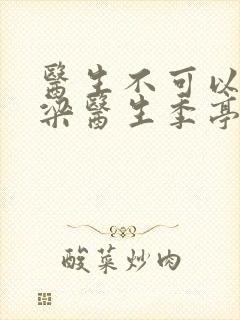 醫生不可以
梁醫生季亭
酸菜炒肉